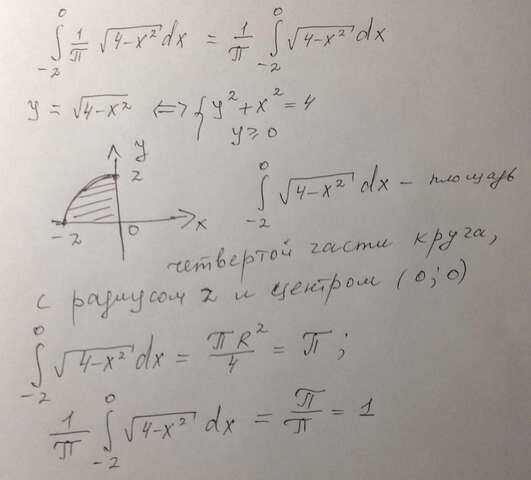 ∫₋₂⁰ 1/π √(4-x²) dx = 1/π ∫₋₂⁰ √(4-x²) dx
y = √(4-x²) ⟺ { y² + x² = 4
y ≥ 0
y
2
-2 0 x
∫₋₂⁰ √(4-x²) dx – площадь
четвертой части круга,
с радиусом 2 и центром (0;0)
∫₋₂⁰ √(4-x²) dx = πR²/4 = π;
1/π ∫₋₂⁰ √(4-x²) dx = π/π = 1